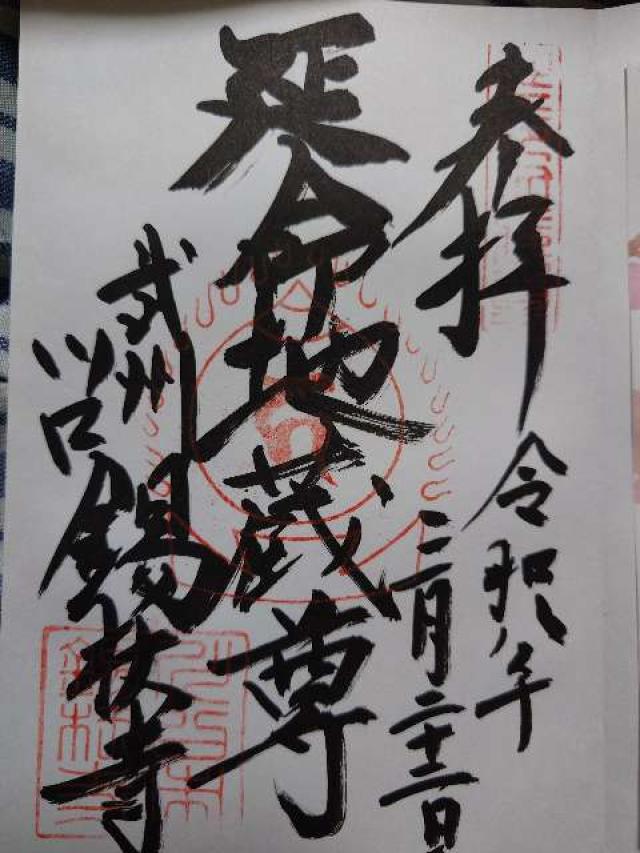 奉拝
令和八年
三月二十二日
延命地蔵尊
武州
川口
錫杖寺